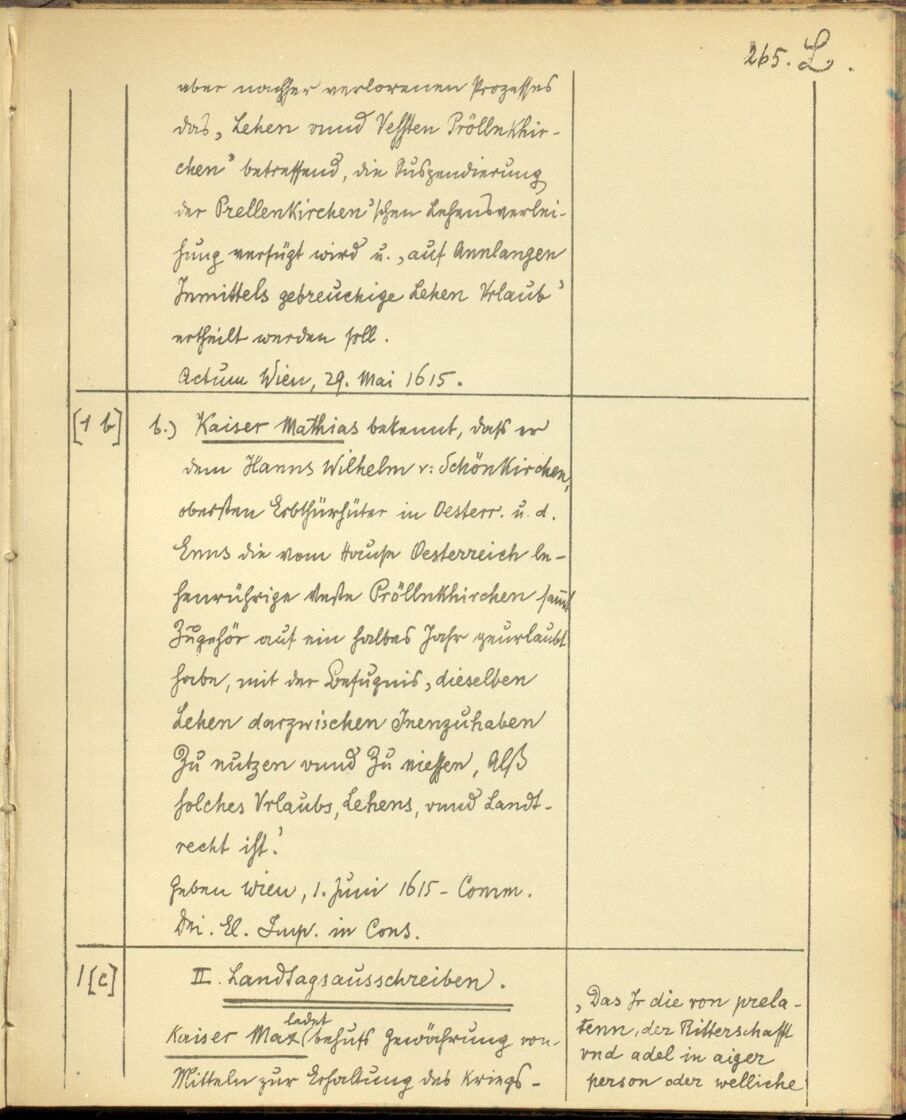 265. L.
aber nachher verlorenen Prozesses
das „Lehen vnnd Vessten Pröllnkhir-
chen" betreffend, die Suspendierung
der Prellenkirchen'schen Lehensverlei-
hung verfügt wird u. „auf Annlangen
Inmittels gebreuchige Lehen Vrlaub"
ertheilt werden soll.
Actum Wien, 29. Mai 1615.
[1 b]
b.) Kaiser Mathias bekennt, daß er
dem Hanns Wilhelm v: Schönkirchen,
obersten Erbthürhüter in Oesterr. u. d.
Enns die vom Hause Oesterreich le-
henrührige Veste Pröllnkhirchen sammt
Zugehör auf ein halbes Jahr geurlaubt
habe, mit der Befugnis, „dieselben
Lehen darzwischen Inenzuhaben
Zu nutzen vnnd Zu niessen, Alß
solches Vrlaubs, Lehens, vnnd Landt-
recht ist."
Geben Wien, 1. Juni 1615 - Comm.
Dni. El. Imp. in Cons.
1 [c]
II. Landtagsausschreiben.
Kaiser Max ladet behufs Gewährung von
Mitteln zur Erhaltung des Kriegs-
„Das Ir die von prela-
tenn, der Ritterschafft
vnd adel in aiger
person oder welliche